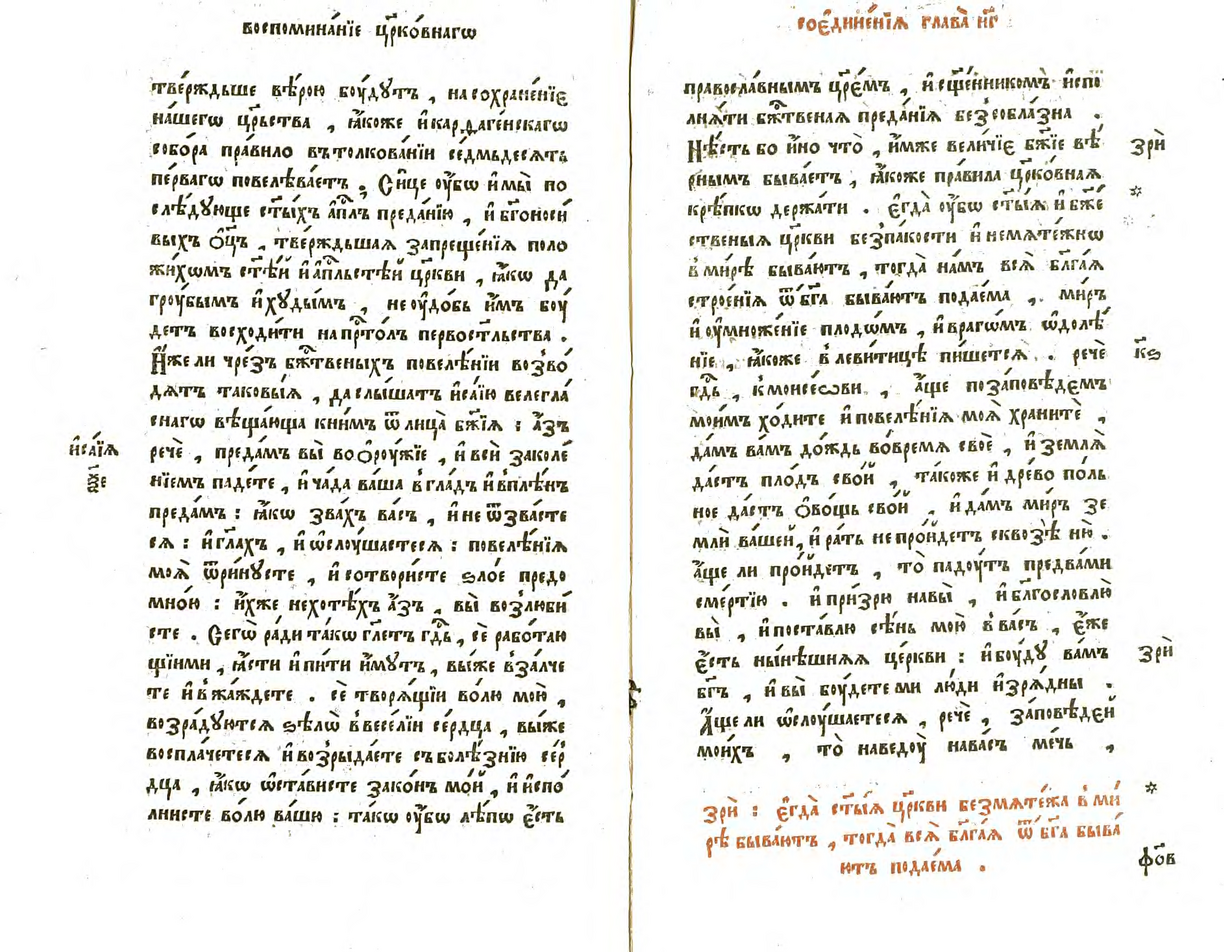 воспомина́нїе цр҃ко́внагѡ
тве́рждьше вѣ́рою боу́дутъ , на сохране́нїе
на́шегѡ цр҃ьства , ꙗ҆́коже и҆ карѳаге́нскагѡ
собо́ра пра́вило в̾ толкова́нїи се́дмьдесѧтъ
пе́рвагѡ повелѣва́етъ . Си́це оу҆̀бѡ и҆ мы̀ по
слѣ́дующе ст҃ы́хъ а҆п҃лъ преда́нїю , и҆ бг҃оноси
выхъ ѻ҆ц҃ъ , тве́рждьшаѧ запреще́нїѧ поло
жи́хѡмъ ст҃ѣ́й и҆ а҆п҃льстѣ́й цр҃кви , ꙗ҆́кѡ да
гроу́бымъ и҆ худы́мъ , не оу҆до́бь и҆̀мъ боу́
детъ восходи́ти на прⷭ҇то́лъ первост҃льства .
И҆́же ли чрезъ бж҃твеныхъ повелѣ́нїи возво́
дѧтъ таковы́ѧ , да слы́шатъ и҆са́їю велегла́
снагѡ вѣща́юща к ни́мъ ѿ лица̀ бж҃їѧ : а҆́зъ
речѐ , преда́мъ вы̀ во ѻ҆роу́жїе , и҆ всѝ заколе́
нїемъ паде́те , и҆ ча́да ва́ша в гла́дъ и҆ в плѣ́нъ
преда́мъ : ꙗ҆́кѡ зва́хъ ва́съ , и҆ не ѿзва́сте
сѧ : и҆ гл҃ахъ , и҆ ѡ҆слоу́шаетесѧ : повелѣ́нїѧ
моѧ̀ ѿри́нусте , и҆ сотвори́сте ѕло́е предо
мно́ю : и҆́хже не хотѣ́хъ а҆́зъ , вы̀ возлюби́
сте . Сегѡ̀ ра́ди та́кѡ гл҃етъ гд҇ь , сѐ рабо́таю
щїи ми , ꙗ҆́сти и҆ пи́ти и҆́мутъ , вы́ же взалче
те и҆ в̾жа́ждете . сѐ творѧ́щїи во́лю мою̀ ,
возра́дуютсѧ ѕѣлѡ̀ в весе́лїи се́рдца , вы́ же
воспла́четесѧ и҆ возрыда́ете съ болѣ́знїю се́р
дца , ꙗ҆́кѡ ѡ҆ста́висте зако́нъ мо́й , и҆ и҆спо́
лнисте во́лю ва́шю : та́кѡ оу҆̀бѡ лѣ́пѡ є҆́сть
и҆са́їѧ
ѯ҃е
соєдине́нїѧ глава̀ н҃г
правосла́внымъ цр҃е́мъ , и҆ сщ҃е́нникомъ и҆спо
лнѧ́ти бж҃твенаѧ преда́нїѧ безсобла́зна .
Нѣ́сть бо и҆́но что̀ , и҆́мже вели́чїе бж҃їе вѣ́
рнымъ быва́етъ , ꙗ҆́коже пра́вила цр҃ко́внаѧ
крѣ́пкѡ держа́ти . є҆гда̀ оу҆̀бѡ ст҃ы́ѧ и҆ бж҃е́
ственыѧ цр҃кви без̾па́кости и҆ немѧте́жнѡ
в̾ ми́рѣ быва́ютъ , тогда̀ на́мъ всѧ̀ бл҃га́ѧ
строе́нїѧ ѿ бг҃а быва́ютъ подае́ма . ми́ръ
и҆ оу҆множе́нїе плодѡ́мъ , и҆ врагѡ́мъ ѡ҆долѣ́
нїе , ꙗ҆́коже в̾ леви́тицѣ пи́шетсѧ . речѐ
гд҇ь , к̾ моисе́ѡви , а҆́ще по за́повѣдемъ
мои́мъ хо́дите и҆ повелѣ́нїѧ моѧ̀ храни́те ,
да́мъ ва́мъ до́ждь во вре́мѧ своѐ , и҆ землѧ̀
да́стъ пло́дъ сво́й , та́коже и҆ дре́во по́ль
ное да́стъ ѻ҆́вощь сво́й . и҆ да́мъ ми́ръ зе
млѝ ва́шей , и҆ ра́ть не про́йдетъ сквозѣ̀ ню̀ .
а҆́ще ли про́йдетъ , то̀ падоу́тъ пред̾ ва́ми
сме́ртїю . и҆ при́зрю на вы̀ , и҆ бл҃гословлю̀
вы̀ , и҆ поста́влю сѣ́нь мою̀ в̾ ва́съ , є҆́же
є҆́сть ны́нѣшнѧѧ це́ркви : и҆ боу́ду ва́мъ
бг҃ъ , и҆ вы̀ боу́дете ми лю́ди и҆зрѧ́дны .
А҆́ще ли ѡ҆слоу́шаетесѧ , речѐ , за́повѣдей
мои́хъ , то̀ наведоу̀ на ва́съ ме́чь ,
зрѝ
*
к҃ѕ
зрѝ
*
зрѝ : є҆гда̀ ст҃ы́ѧ цр҃кви без̾мѧте́жа в̾ ми́
рѣ быва́ютъ , тогда̀ всѧ̀ бл҃га́ѧ ѿ бг҃а быва́
ютъ подае́ма .
фо҃в